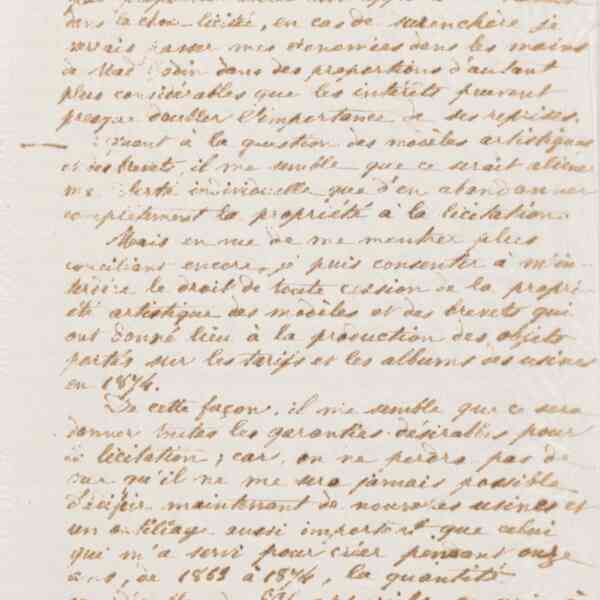 dans la chose licitée, en cas de surenchère je
verrais passer mes économies dans les mains
de Mad. Godin dans des proportions d'autant
plus considérables que les intérêts peuvent
presque doubler l'importance de ses reprises.
Quant à la question des modèles artistiques
et des brevets, il me semble que ce serait aliéner
ma liberté individuelle que d'en abandonner
complètement la propriété à la licitation.
Mais en vue de me montrer plus
conciliant encore, je puis consentir à m'in-
terdire le droit de toute cession de la propri-
été artistique des modèles et des brevets qui
ont donné lieu à la production des objets
portés sur les tarifs et les albums des usines
en 1874.
De cette façon, il me semble que ce sera
donner toutes les garanties désirables pour
la licitation; car, on ne perdra pas de
vue qu'il ne me sera jamais possible
d'édifier maintenant de nouvelles usines et
un outillage aussi important que celui
qui m'a servi pour créer pendant onze
ans, de 1863 à 1874, la quantité